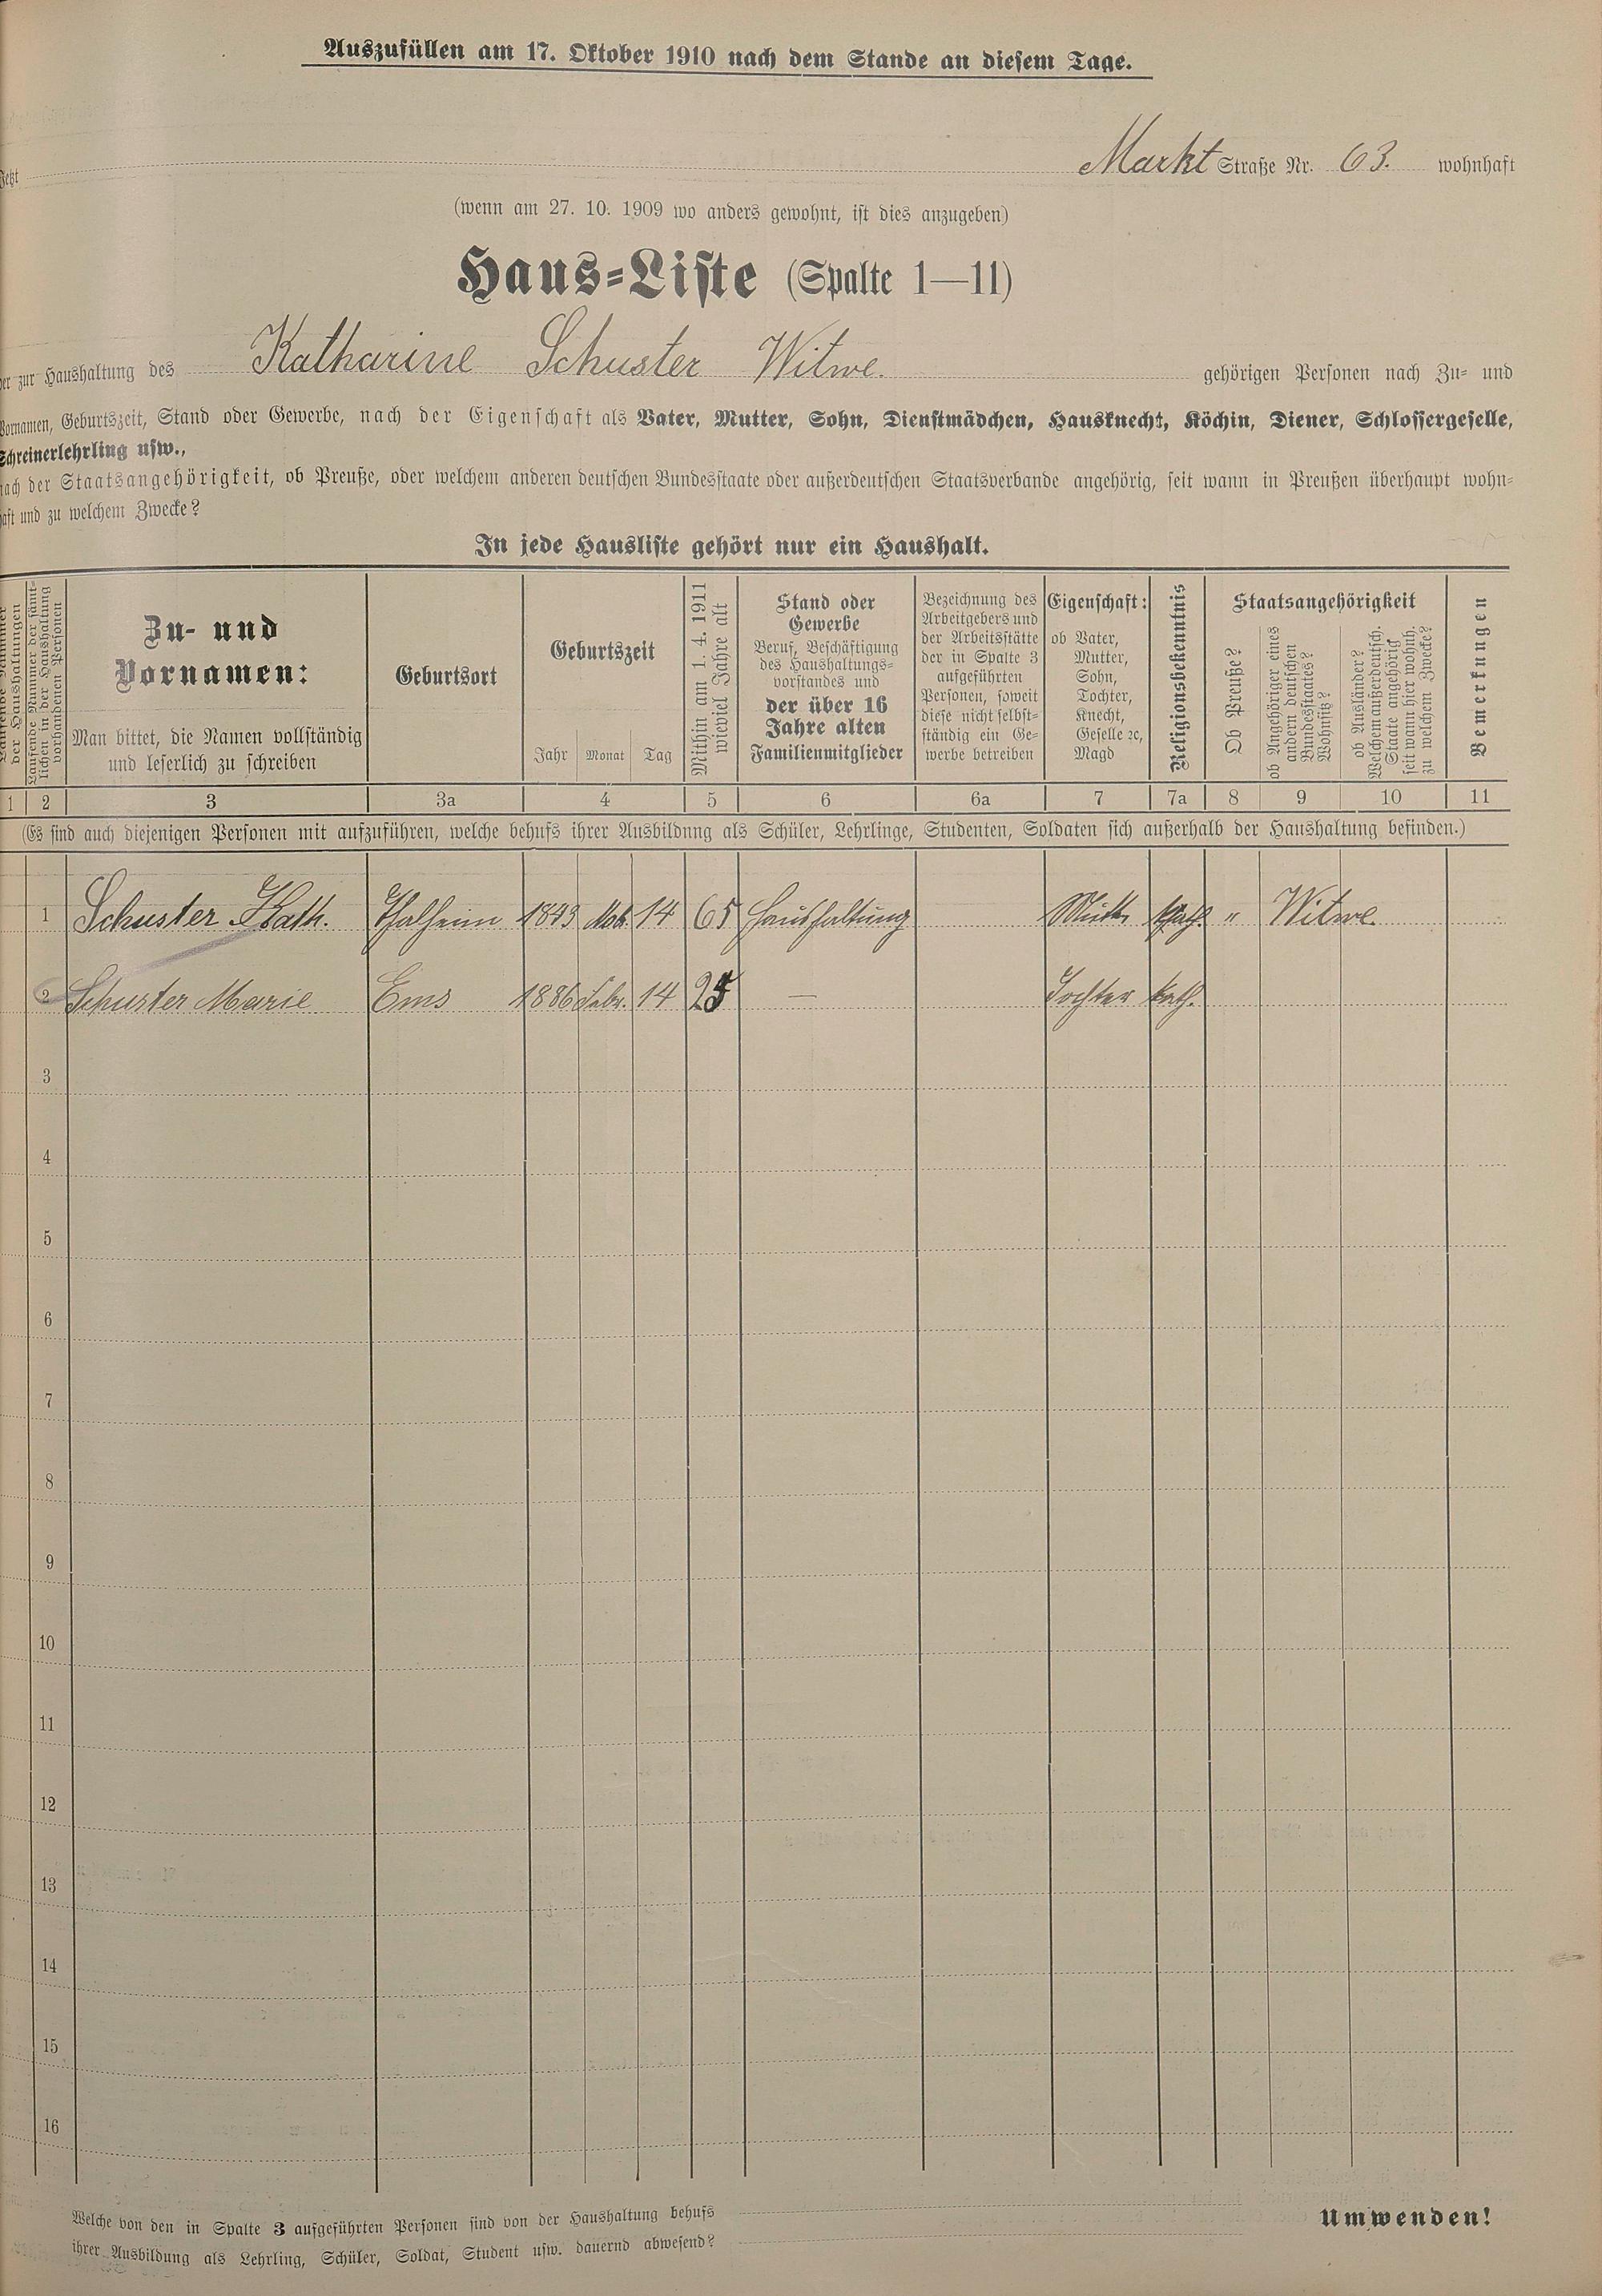 Auszufüllen am 17. Oktober 1910 nach dem Stande an diesem Tage.
Jetzt Markt Straße Nr. 63. wohnhaft
(wenn am 27. 10. 1909 wo anders gewohnt, ist dies anzugeben)
Haus-Liste (Spalte 1—11)
der zur Haushaltung des Katharine Schuster Witwe. gehörigen Personen nach Zu- und
Vornamen, Geburtszeit, Stand oder Gewerbe, nach der Eigenschaft als Vater, Mutter, Sohn, Dienstmädchen, Hausknecht, Köchin, Diener, Schlossergeselle,
Schreinerlehrling usw.,
nach der Staatsangehörigkeit, ob Preuße, oder welchem anderen deutschen Bundesstaate oder außerdeutschen Staatsverbande angehörig, seit wann in Preußen überhaupt wohn-
haft und zu welchem Zwecke?
In jede Hausliste gehört nur ein Haushalt.
der Haushaltungen
Laufende Nummer der sämt-
lichen in der Haushaltung
vorhandenen Personen
Zu- und
Vornamen:
Man bittet, die Namen vollständig
und leserlich zu schreiben
Geburtsort
Geburtszeit
Jahr Monat Tag
Mithin am 1. 4. 1911
wieviel Jahre alt
Stand oder
Gewerbe
Beruf, Beschäftigung
des Haushaltungs-
vorstandes und
der über 16
Jahre alten
Familienmitglieder
Bezeichnung des
Arbeitgebers und
der Arbeitsstätte
der in Spalte 3
aufgeführten
Personen, soweit
diese nicht selbst-
ständig ein Ge-
werbe betreiben
Eigenschaft:
ob Vater,
Mutter,
Sohn,
Tochter,
Knecht,
Geselle ꝛc,
Magd
Religionsbekenntnis
Staatsangehörigkeit
Ob Preuße?
ob Angehöriger eines
andern deutschen
Bundesstaates?
Wohnsitz?
ob Ausländer?
Welchem außerdeutsch.
Staate angehörig
seit wann hier wohnh.
zu welchem Zwecke?
Bemerkungen
1 2 3 3a 4 5 6 6a 7 7a 8 9 10 11
(Es sind auch diejenigen Personen mit aufzuführen, welche behufs ihrer Ausbildung als Schüler, Lehrlinge, Studenten, Soldaten sich außerhalb der Haushaltung befinden.)
1 Schuster Kath. Thalheim 14 65 Haushaltung kath. " Witwe.
2 Schuster Marie Ems 1886 Febr. 14 25 — Tochter kath.
3
4
5
6
7
8
9
10
11
12
13
14
15
16
Welche von den in Spalte 3 aufgeführten Personen sind von der Haushaltung behufs
ihrer Ausbildung als Lehrling, Schüler, Soldat, Student usw. dauernd abwesend?
Umwenden!